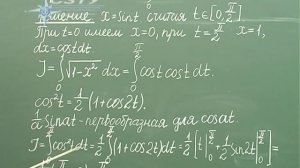 Решение x=sint считая t∈[0, π/2].
При t=0 имеем x=0, при t=π/2 x=1,
dx=costdt.
J=∫√1-x² dx=∫cost cost dt.
cos²t=1/2(1+cos2t).
1/a sinat - первообразная для cosat.
J=∫cos²tdt=1/2∫(1+cos2t)dt=1/2[t|₀^(π/2)+1/2 sin2t|₀^(π/2)]=